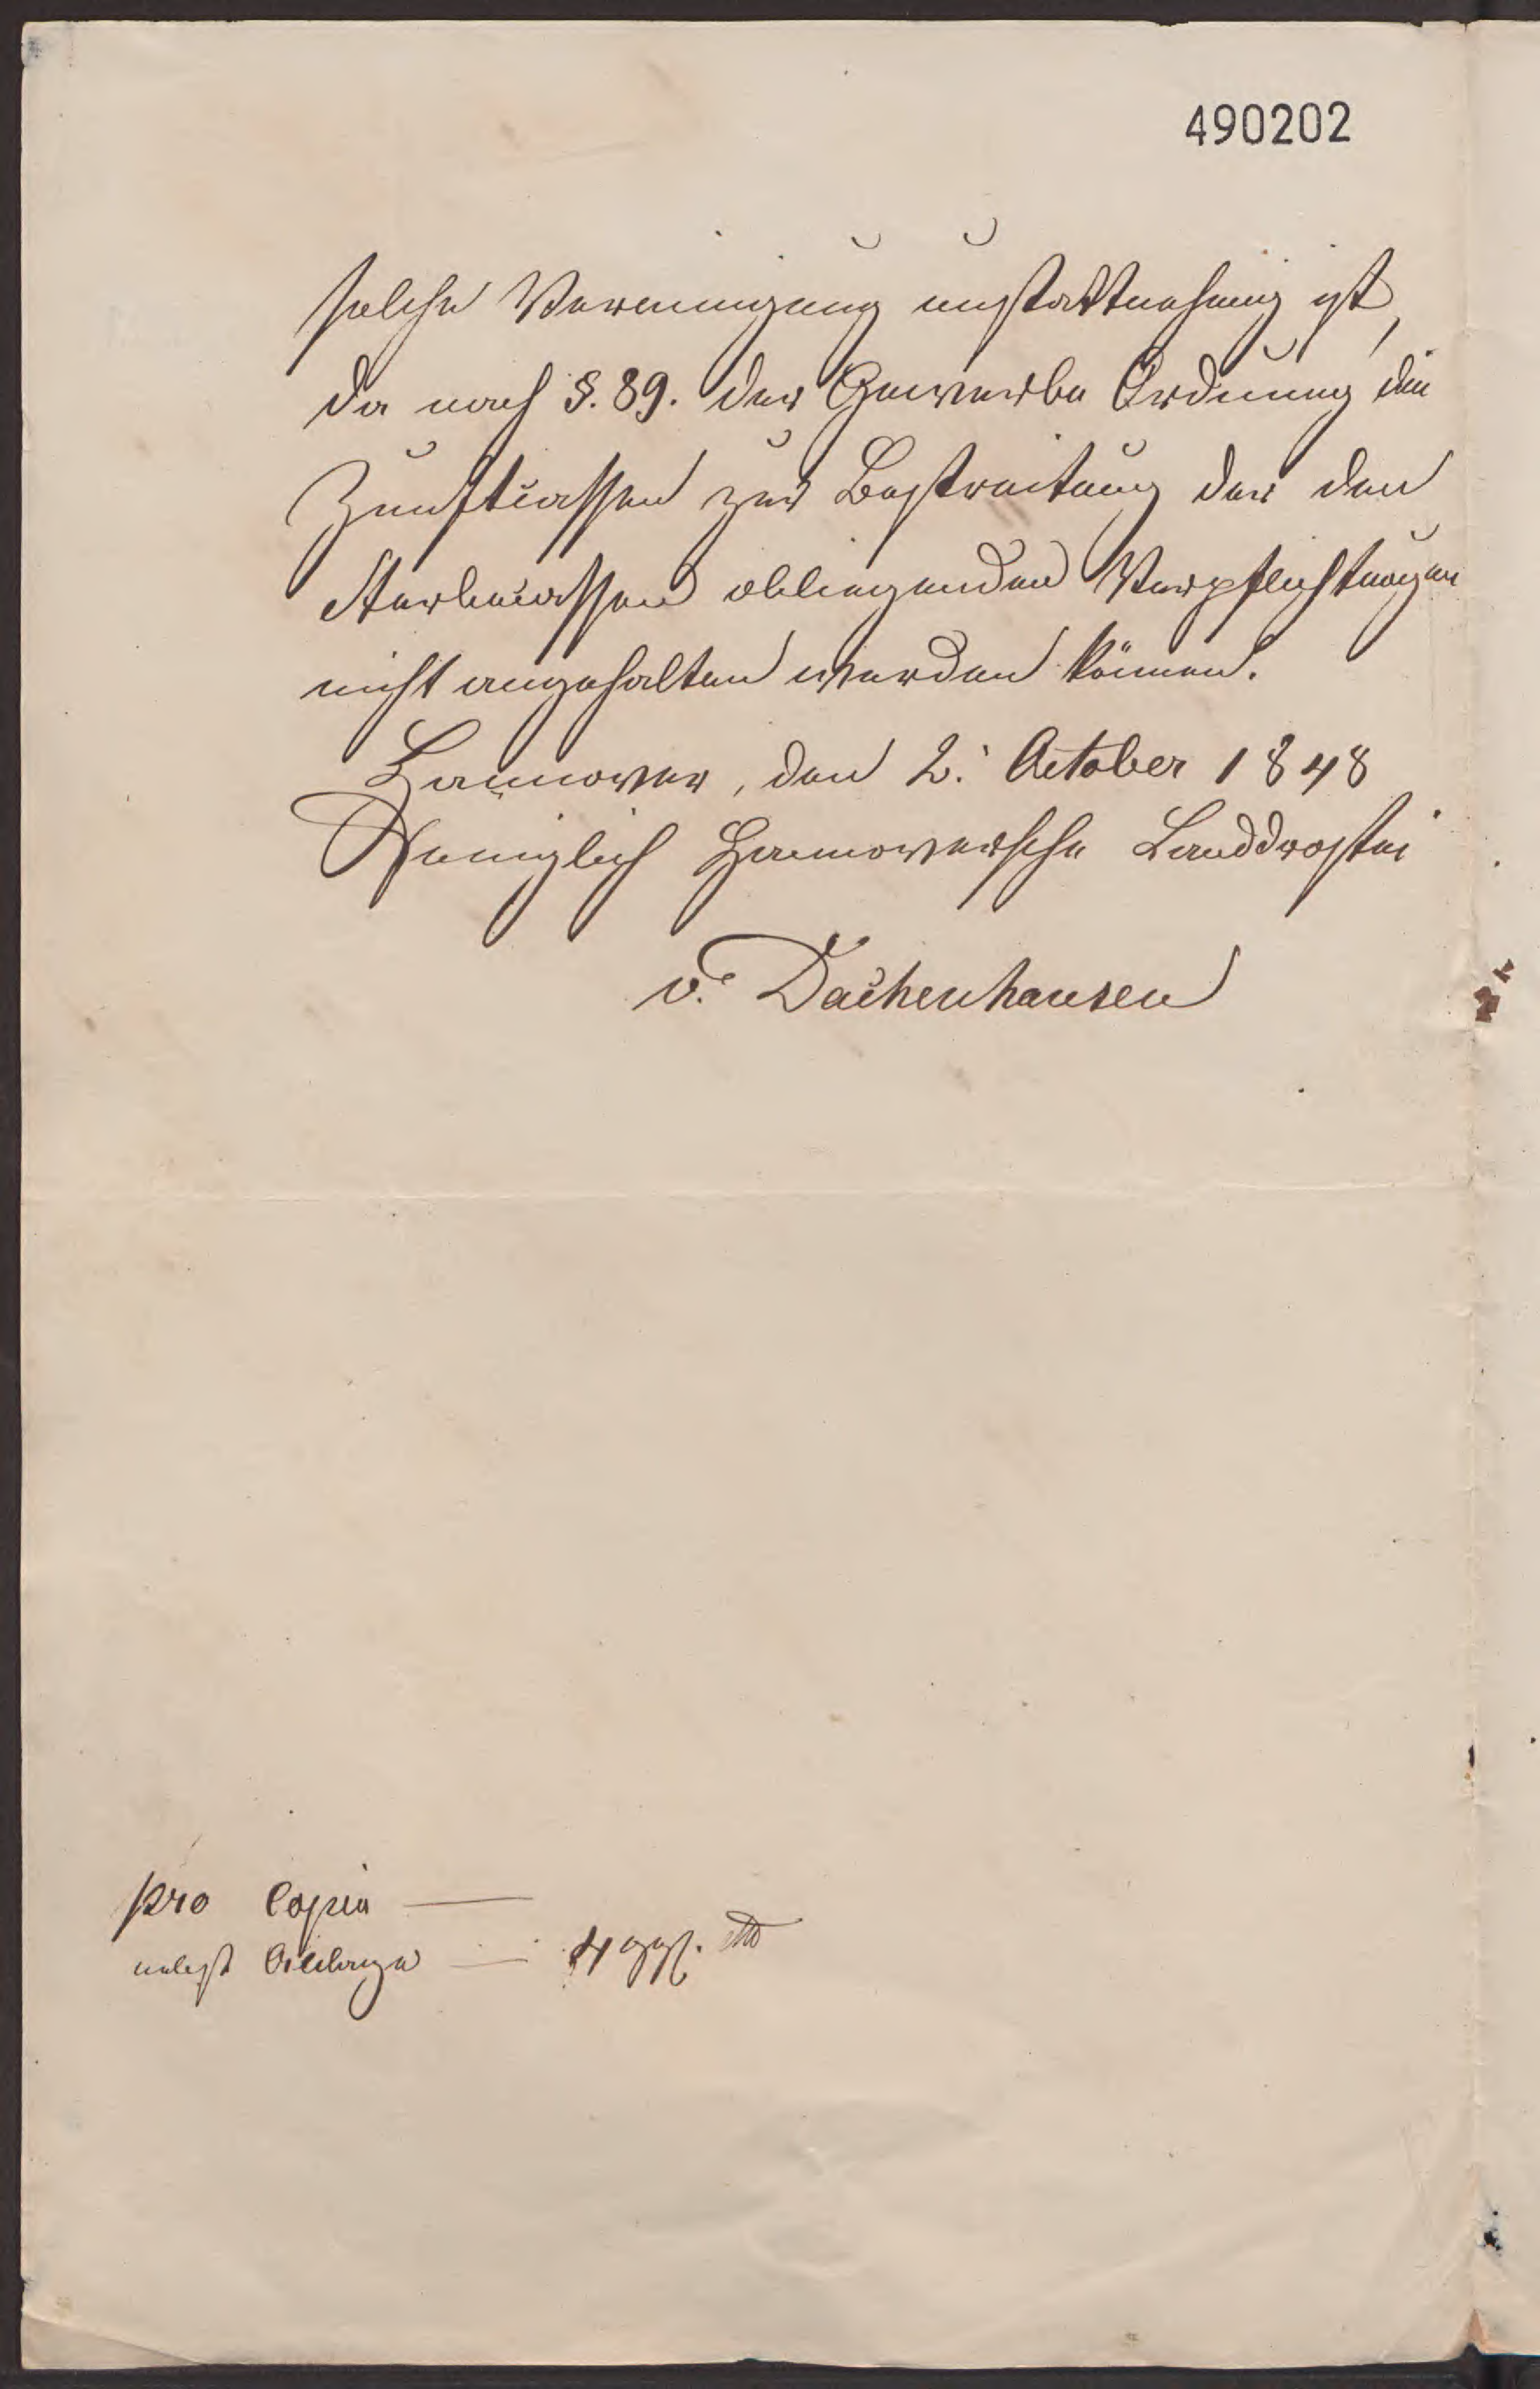 490202
solche Vereinigung unstattnehmig ist,
da nach §. 89. der Gewerbe Ordnung die
Zunftcassen zur Bestreitung der den
Sterbecassen obliegenden Verpflichtungen
nicht angehalten werden können.
Hannover, den 2. October 1848
Königlich Hannoversche Landdrostei
v. Dachenhausen
pro Copia —
nebst Anlage — 4 ggr.